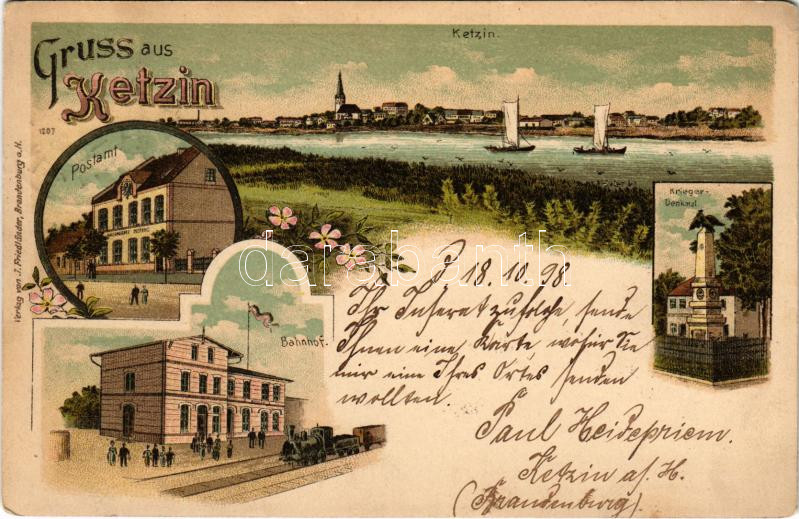 Gruss aus
Ketzin
Ketzin.
1207
Postamt
Krieger-
Denkmal
Bahnhof.
Verlag von J. Friedländer, Brandenburg a./H.
darabanth
18.10.98
Ihr Inserat zufolge, sende
Ihnen eine Karte, wofür Sie
mir eine Ihres Ortes senden
wollten.
Paul Heidepriem.
Ketzin a/. H.
(Brandenburg).